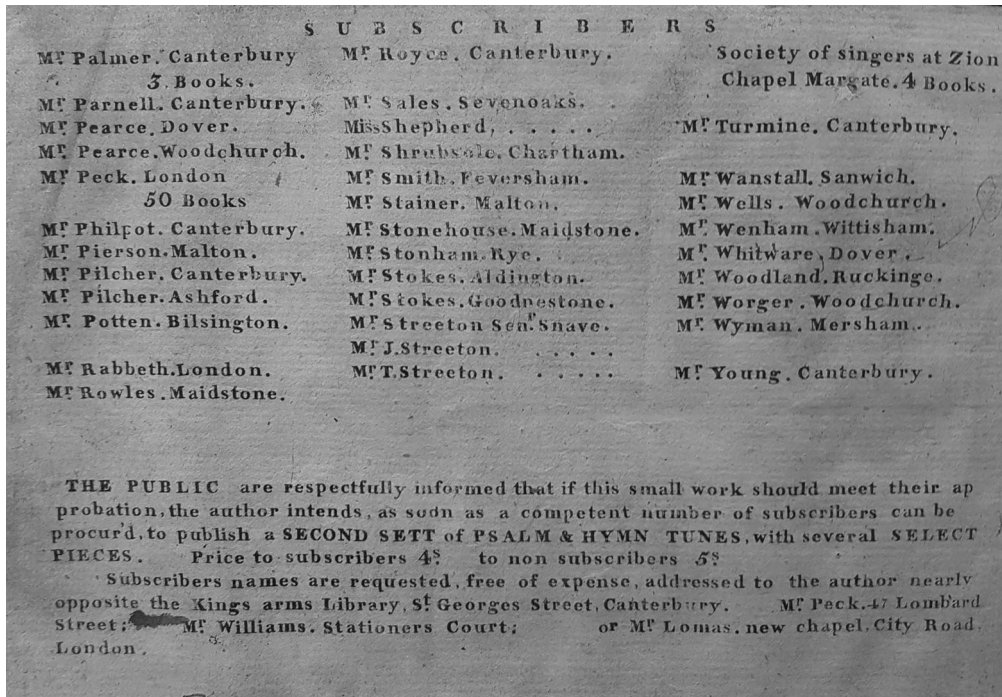 SUBSCRIBERS
Mr Palmer. Canterbury
3 Books.
Mr Parnell. Canterbury.
Mr Pearce. Dover.
Mr Pearce. Woodchurch.
Mr Peck. London
50 Books
Mr Philpot. Canterbury.
Mr Pierson. Malton.
Mr Pilcher. Canterbury.
Mr Pilcher. Ashford.
Mr Potten. Bilsington.
Mr Rabbeth. London.
Mr Rowles. Maidstone.
Mr Royce. Canterbury.
Mr Sales. Sevenoaks.
Miss Shepherd, . . . . .
Mr Shrubsole. Chartham.
Mr Smith. Feversham.
Mr Stainer. Malton.
Mr Stonehouse. Maidstone.
Mr Stonham. Rye.
Mr Stokes. Aldington.
Mr Stokes. Goodnestone.
Mr Streeton Senr Snave.
Mr J. Streeton. . . . . .
Mr T. Streeton. . . . . .
Society of singers at Zion
Chapel Margate. 4 Books.
Mr Turmine. Canterbury.
Mr Wanstall. Sanwich.
Mr Wells. Woodchurch.
Mr Wenham. Wittisham.
Mr Whitware, Dover.
Mr Woodland. Ruckinge.
Mr Worger. Woodchurch.
Mr Wyman. Mersham.
Mr Young. Canterbury.
THE PUBLIC are respectfully informed that if this small work should meet their ap
probation, the author intends, as soon as a competent number of subscribers can be
procur'd, to publish a SECOND SETT of PSALM & HYMN TUNES, with several SELECT
PIECES. Price to subscribers 4s. to non subscribers 5s
Subscribers names are requested, free of expense, addressed to the author nearly
opposite the Kings arms Library, St Georges Street, Canterbury. Mr Peck. 47 Lombard
Street; Mr Williams. Stationers Court; or Mr Lomas. new chapel. City Road.
London.